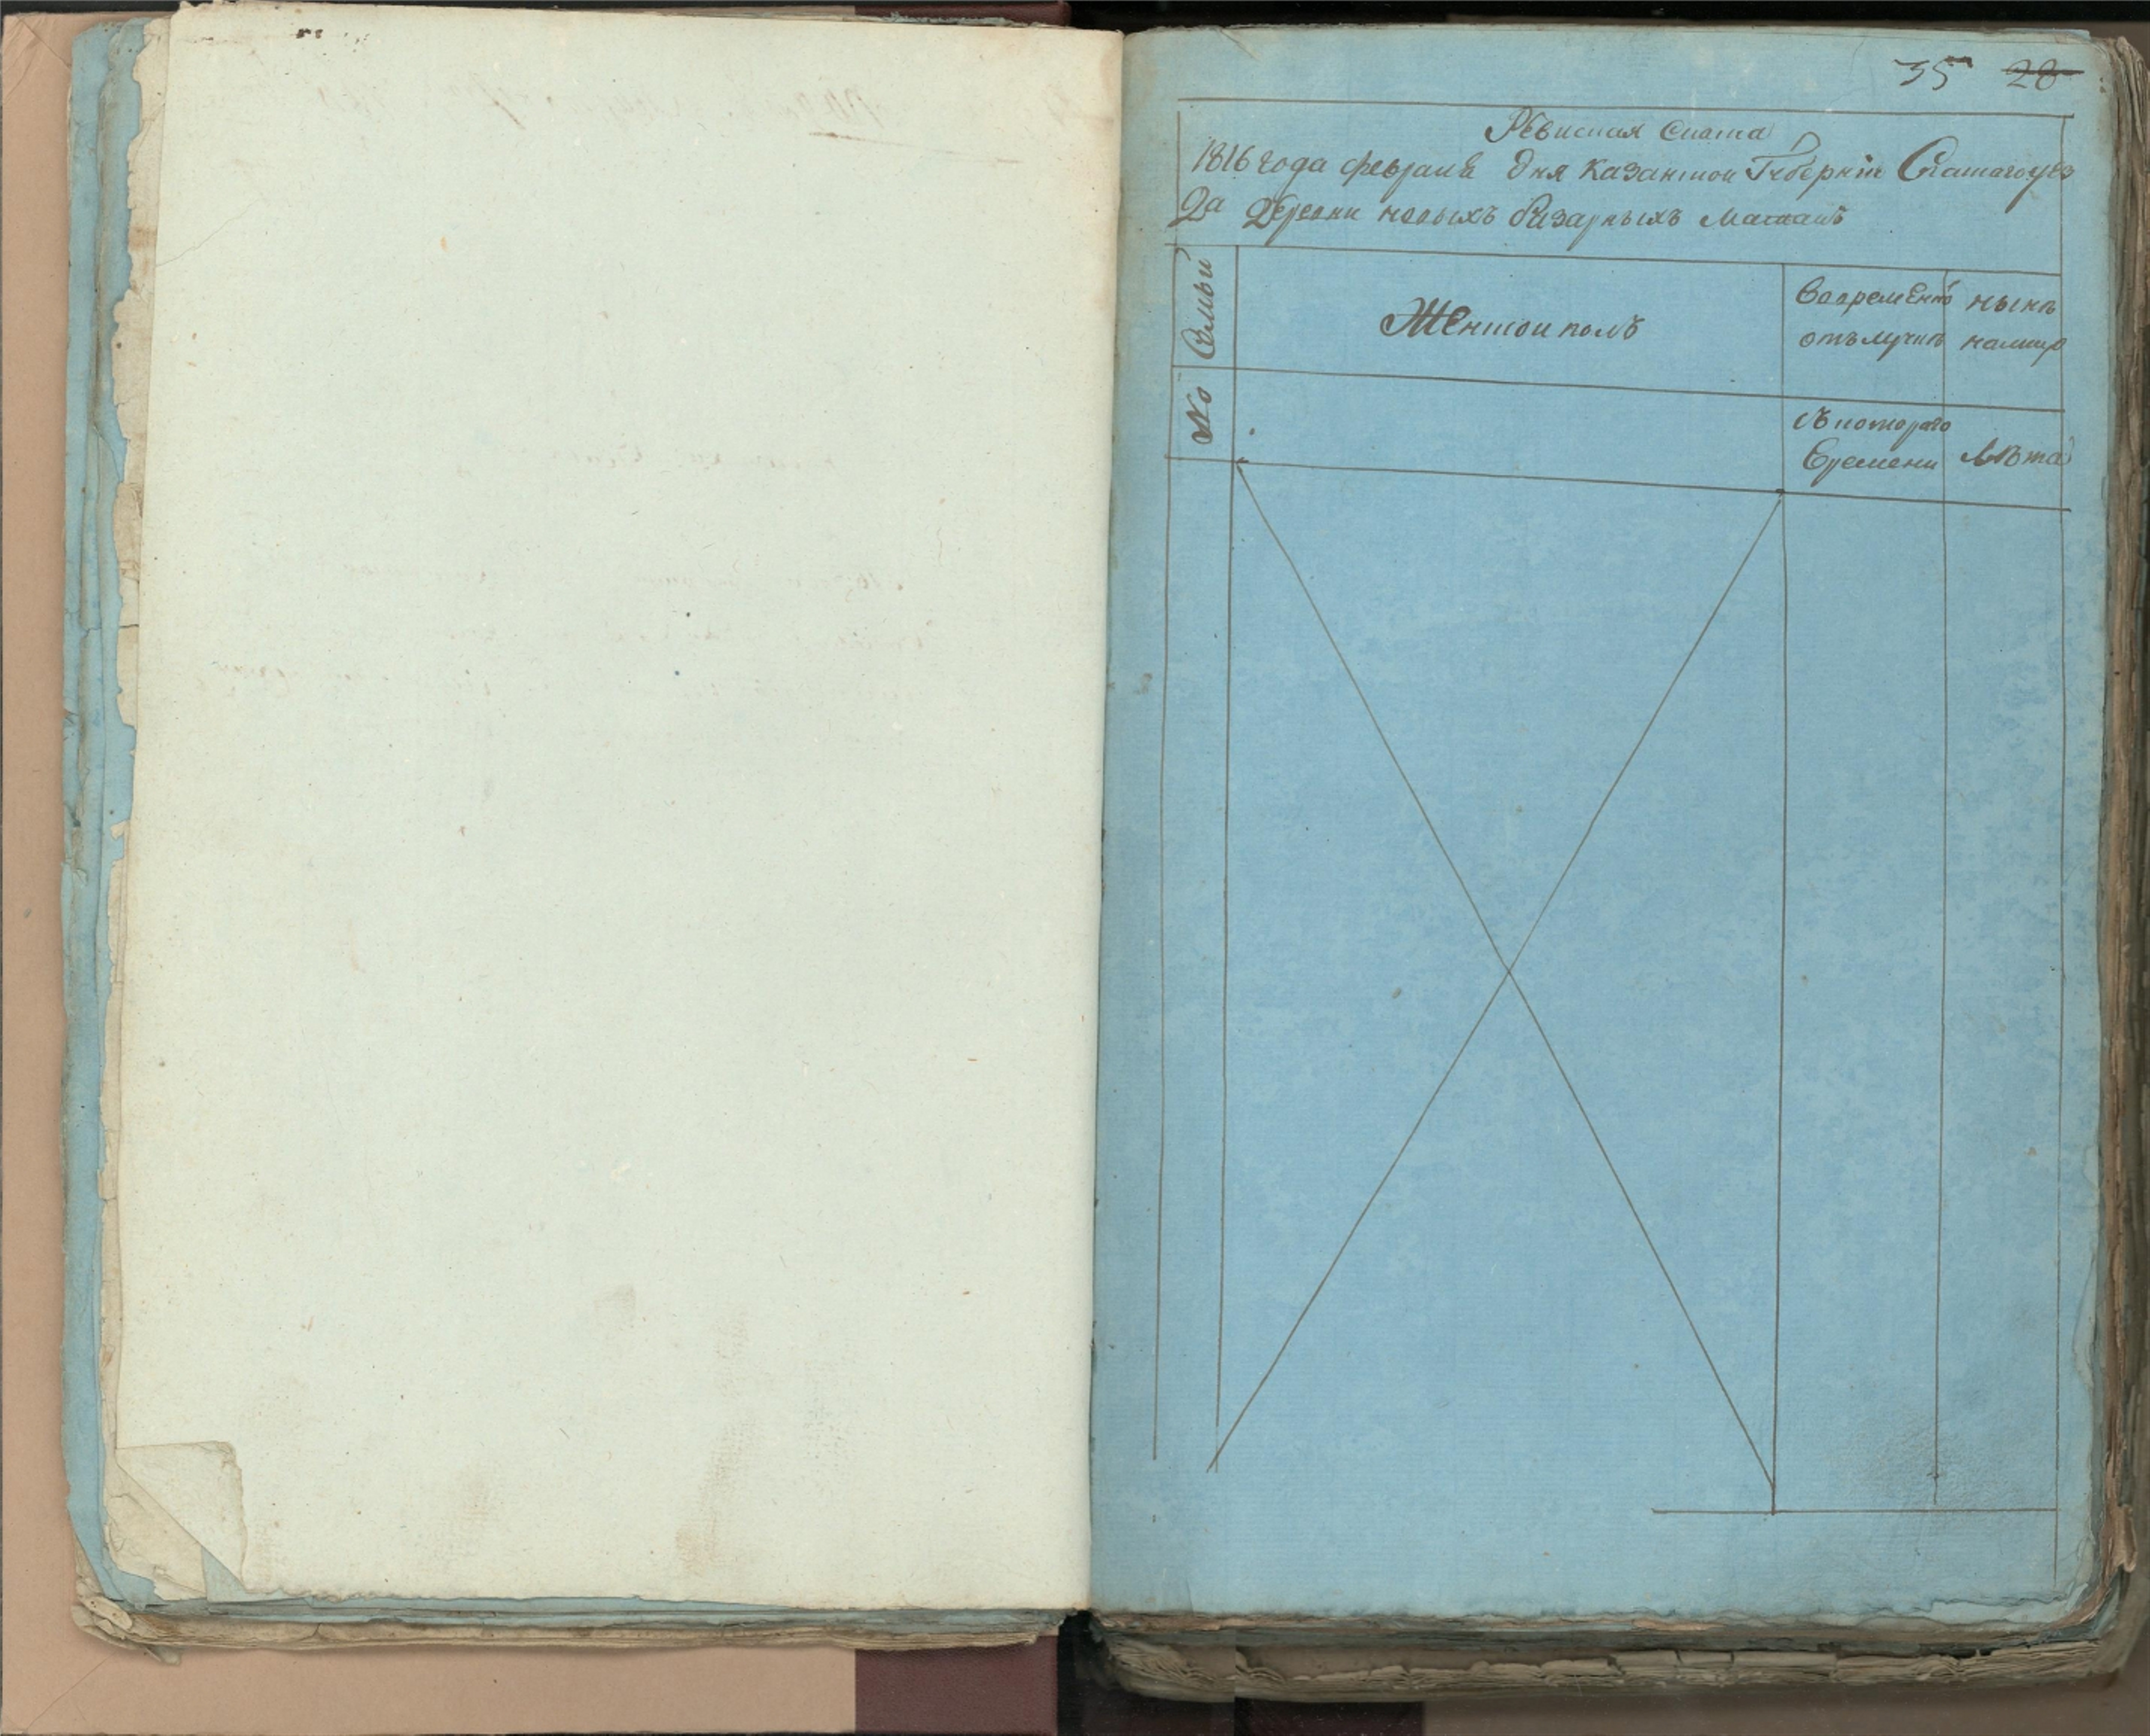 35 28
Ревиская Скаска
1816 года февраля дня казанской Губернiи Спаскаго уез
да Деревни новыхъ базарныхъ Матакъ
No Семьи
Женской полъ
Вовременно
отълучке
ныне
налицо
Съ котораго
Времени
Лѣта